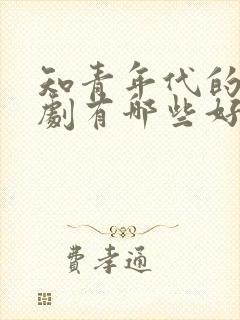 知青年代的
劇有哪些好
費孝通